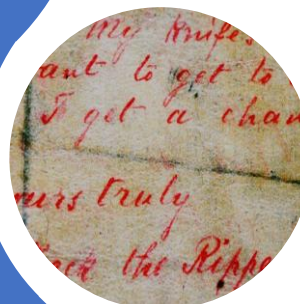 My knife's
ant to get to
I get a chan
urs truly
ack the Rippe